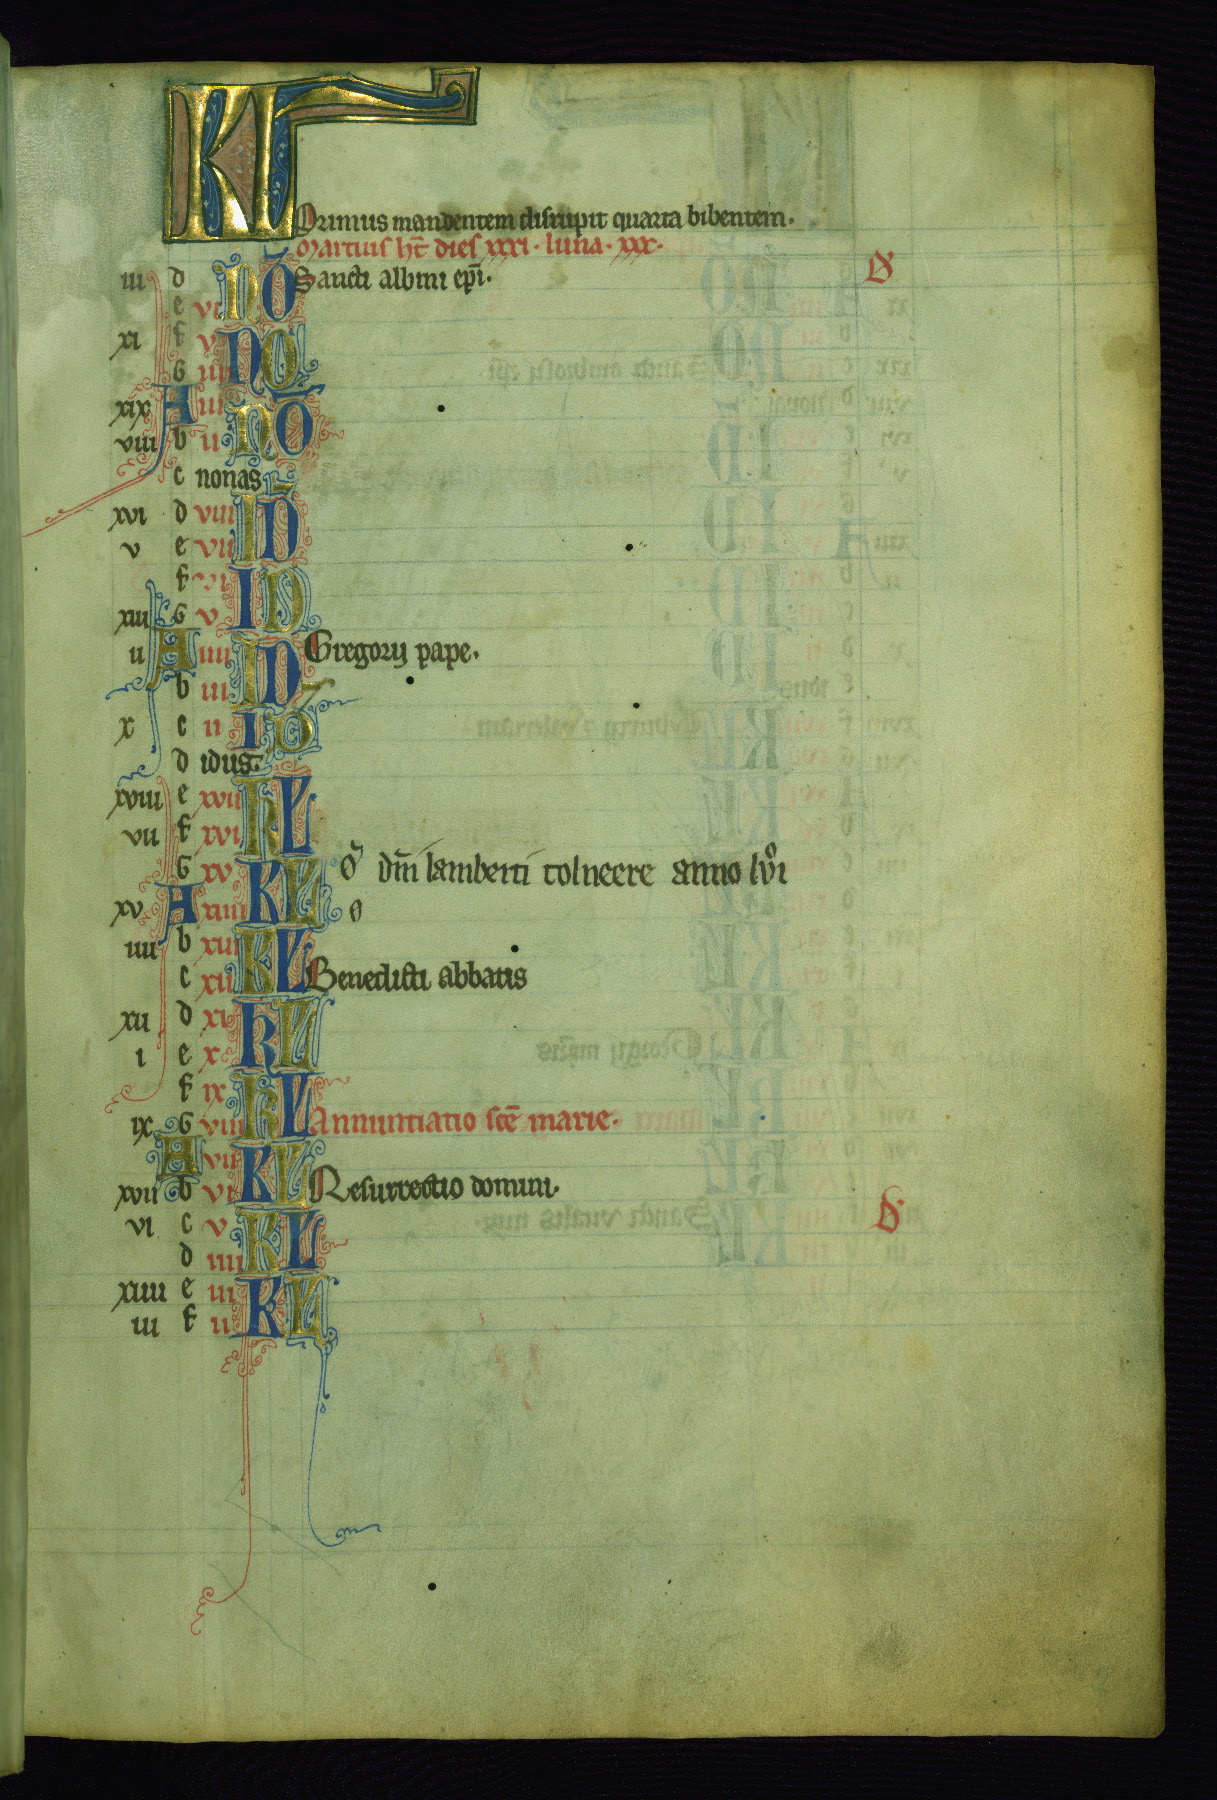 KL
Primus mandentem disrupit quarta bibentem.
Martius ht̄ dies xxxi. luna. xxx.
iii d NO Sancti albini ep̄i. D
e vi
xi f v NO
G iiii
xix A iii NO
viii b ii
c nonas
xvi d viii ID
v e vii
f vi ID
xiii G v
ii A iiii ID Gregorij pape.
b iii
x c ii ID
d idus
xviii e xvii KL
vii f xvi
G xv KL O dn̄i lamberti tolneere anno lvi
xv A xiiii O
iiii b xiii KL
c xii Benedicti abbatis
xii d xi KL
i e x
f ix KL
ix G viii Annuntiatio scē marie.
A vii KL
xvii b vi Resurrectio domini.
vi c v KL D
d iiii
xiiii e iii KL
iii f ii